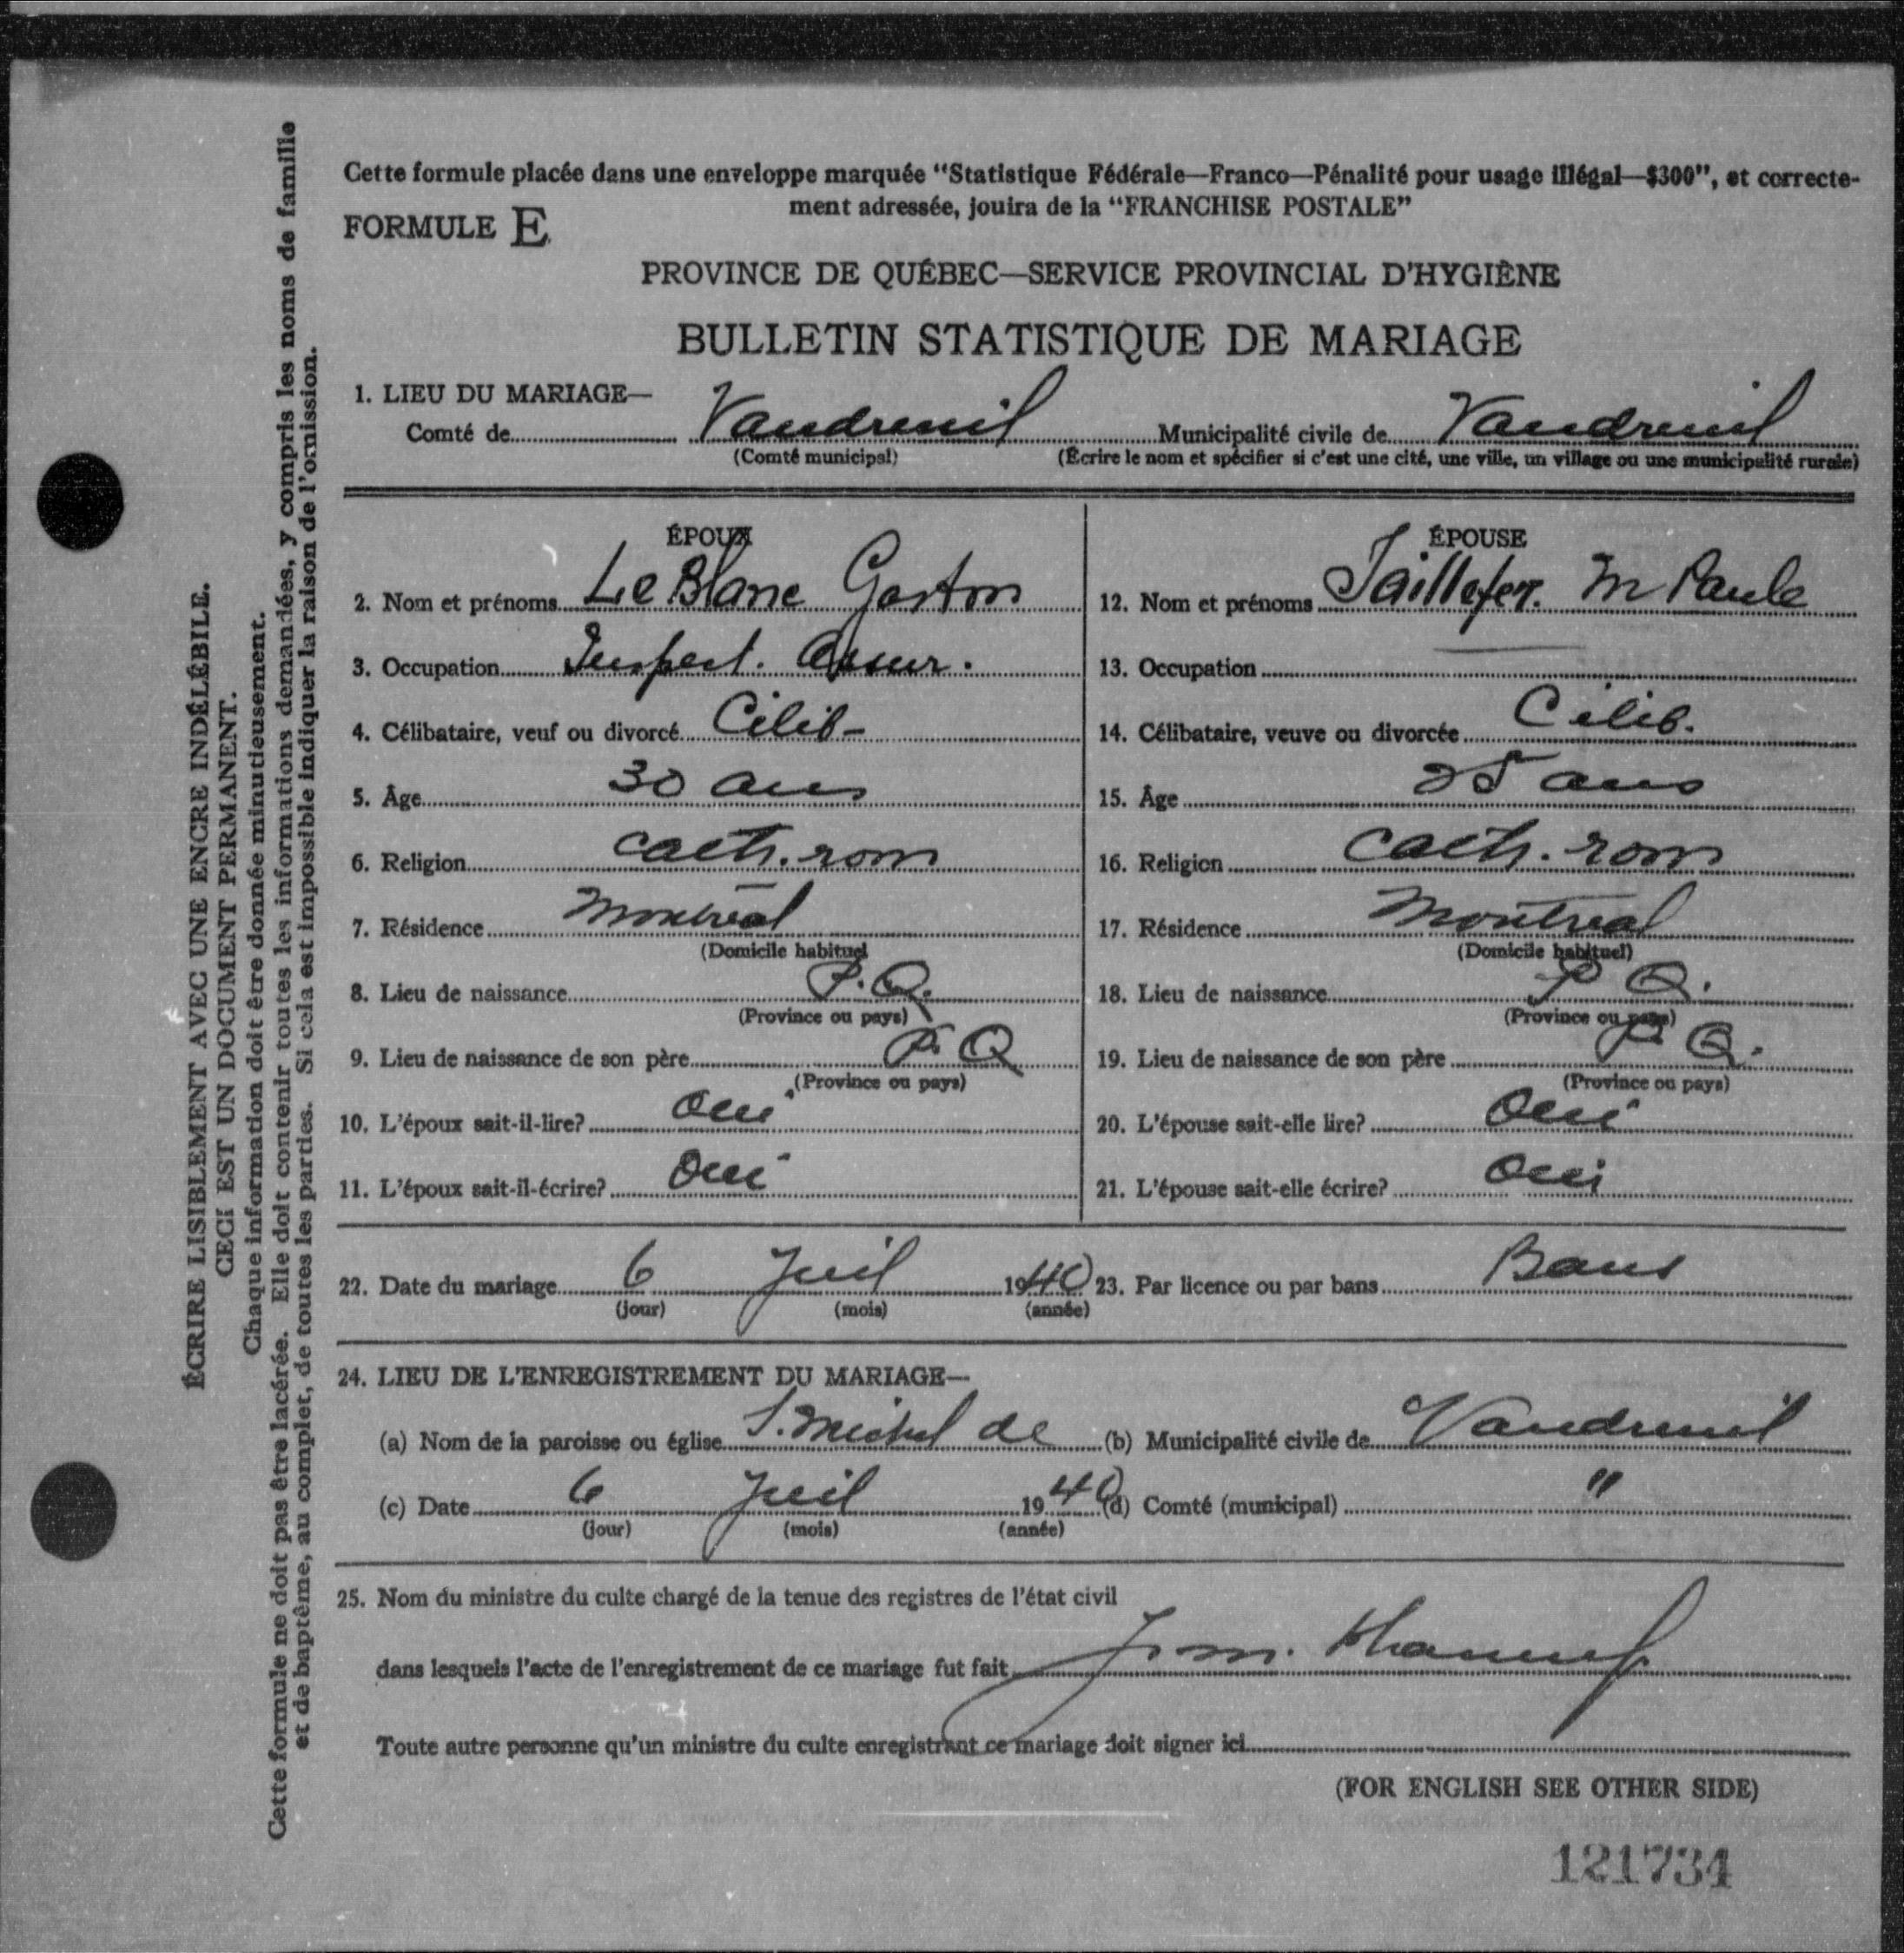 Cette formule placée dans une enveloppe marquée "Statistique Fédérale—Franco—Pénalité pour usage illégal—$300", et correcte-
ment adressée, jouira de la "FRANCHISE POSTALE"
FORMULE E
PROVINCE DE QUÉBEC—SERVICE PROVINCIAL D'HYGIÈNE
BULLETIN STATISTIQUE DE MARIAGE
1. LIEU DU MARIAGE—
Comté de Vaudreuil Municipalité civile de Vaudreuil
(Comté municipal) (Écrire le nom et spécifier si c'est une cité, une ville, un village ou une municipalité rurale)
ÉPOUX
2. Nom et prénoms LeBlanc Gaston
3. Occupation Inspect. Assur.
4. Célibataire, veuf ou divorcé Célib-
5. Âge 30 ans
6. Religion cath. rom
7. Résidence Montréal
(Domicile habituel
8. Lieu de naissance P.Q.
(Province ou pays)
9. Lieu de naissance de son père P.Q
(Province ou pays)
10. L'époux sait-il-lire? Oui
11. L'époux sait-il-écrire? Oui
ÉPOUSE
12. Nom et prénoms Taillefer. M Paule
13. Occupation —
14. Célibataire, veuve ou divorcée Célib.
15. Âge 25 ans
16. Religion cath. rom
17. Résidence Montréal
(Domicile habituel)
18. Lieu de naissance P Q.
(Province ou pays)
19. Lieu de naissance de son père P Q.
(Province ou pays)
20. L'épouse sait-elle lire? Oui
21. L'épouse sait-elle écrire? Oui
22. Date du mariage 6 Juil 1940 23. Par licence ou par bans Bans
(jour) (mois) (année)
24. LIEU DE L'ENREGISTREMENT DU MARIAGE—
(a) Nom de la paroisse ou église S. Michel de (b) Municipalité civile de Vaudreuil
(c) Date 6 Juil 1940 (d) Comté (municipal) "
(jour) (mois) (année)
25. Nom du ministre du culte chargé de la tenue des registres de l'état civil
dans lesquels l'acte de l'enregistrement de ce mariage fut fait
Toute autre personne qu'un ministre du culte enregistrant ce mariage doit signer ici
(FOR ENGLISH SEE OTHER SIDE)
121734
ÉCRIRE LISIBLEMENT AVEC UNE ENCRE INDÉLÉBILE.
CECI EST UN DOCUMENT PERMANENT.
Chaque information doit être donnée minutieusement.
Cette formule ne doit pas être lacérée. Elle doit contenir toutes les informations demandées, y compris les noms de famille
et de baptême, au complet, de toutes les parties. Si cela est impossible indiquer la raison de l'omission.